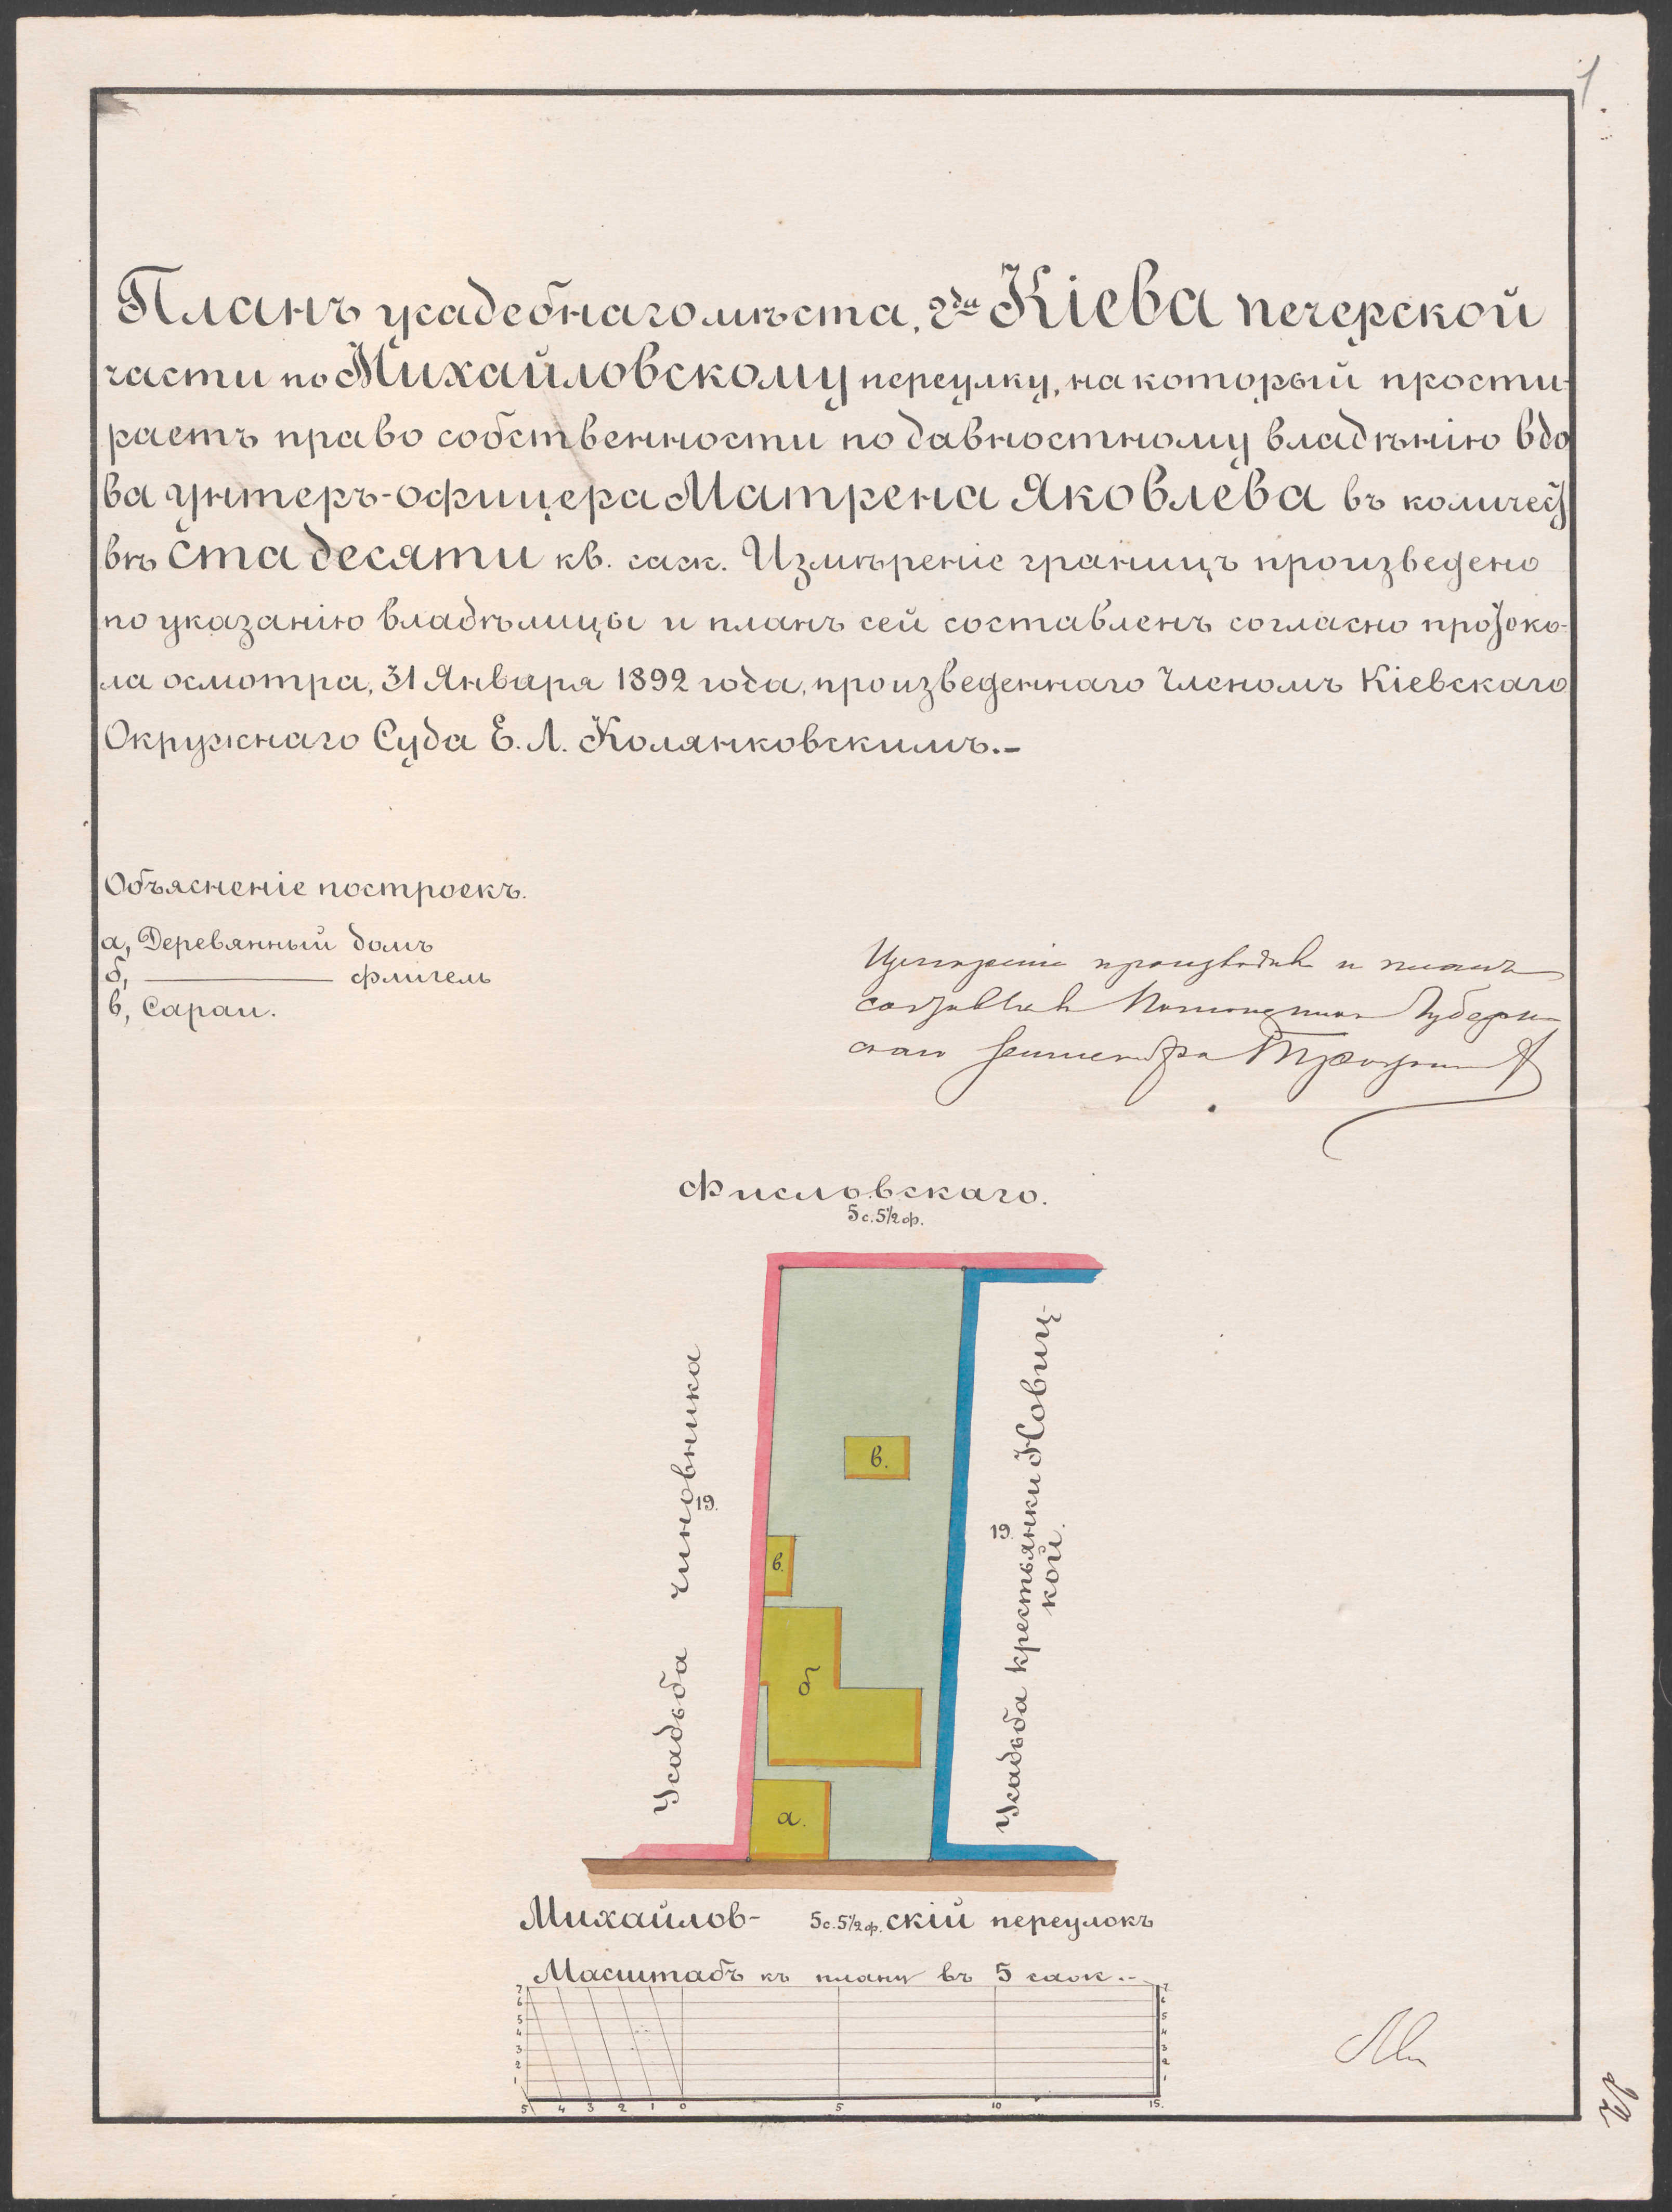 1
Планъ усадебнаго мѣста, г-да Кіева печерской
части по Михайловскому переулку, на который прости-
раетъ право собственности по давностному владѣнію вдо
ва унтеръ-офицера Матрена Яковлева въ количест
вѣ ста десяти кв. саж. Измѣреніе границъ произведено
по указанію владѣлицы и планъ сей составленъ согласно протоко-
ла осмотра, 31 Января 1892 года, произведеннаго Членомъ Кіевскаго
Окружнаго Суда Е. Л. Колянковскимъ.–
Объясненіе построекъ.
а, Деревянный домъ
б, ——— флигель
в, Сараи.
Измѣреніе производилъ и планъ
составилъ Помощникъ Губерн
скаго Землемѣра
Фисловскаго.
5 с. 5 1/2 ф.
Усадьба чиновника
19.
Усадьба крестьянки Новиц-
кой.
19.
в.
в.
б
а.
Михайлов- 5 с. 5 1/2 ф. скій переулокъ
Масштабъ къ плану въ 5 саж.–
7 7
6 6
5 5
4 4
3 3
2 2
1 1
5 4 3 2 1 0 5 10 15.